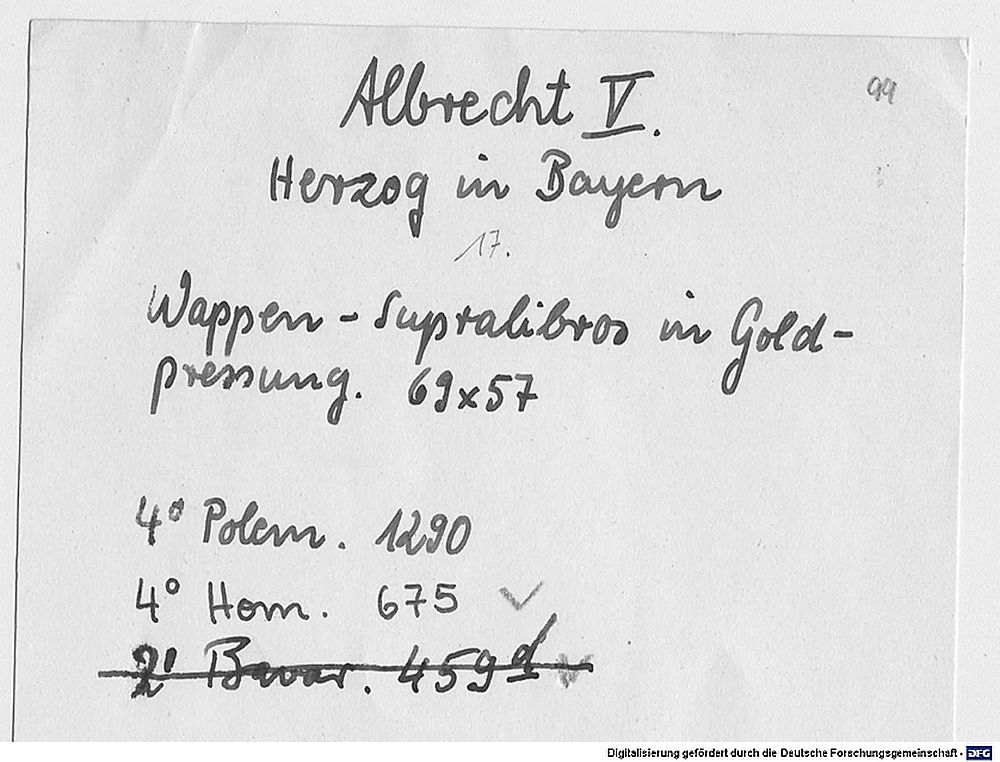 Albrecht V.
99
Herzog in Bayern
17.
Wappen - Supralibros in Gold-
pressung. 69x57
4° Polem. 1290
4° Hom. 675 ✓
2° Bavar. 459 d ✓
Digitalisierung gefördert durch die Deutsche Forschungsgemeinschaft - DFG